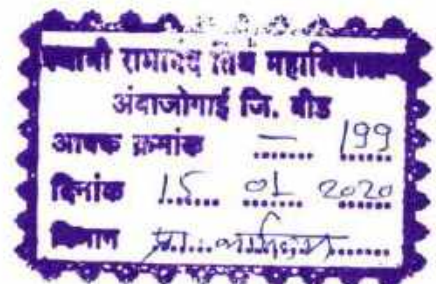 स्वामी रामानंद तिर्थ महाविद्यालय
अंबाजोगाई जि. बीड
आवक क्रमांक – 199
दिनांक 15 01 2020
विभाग प्रा.